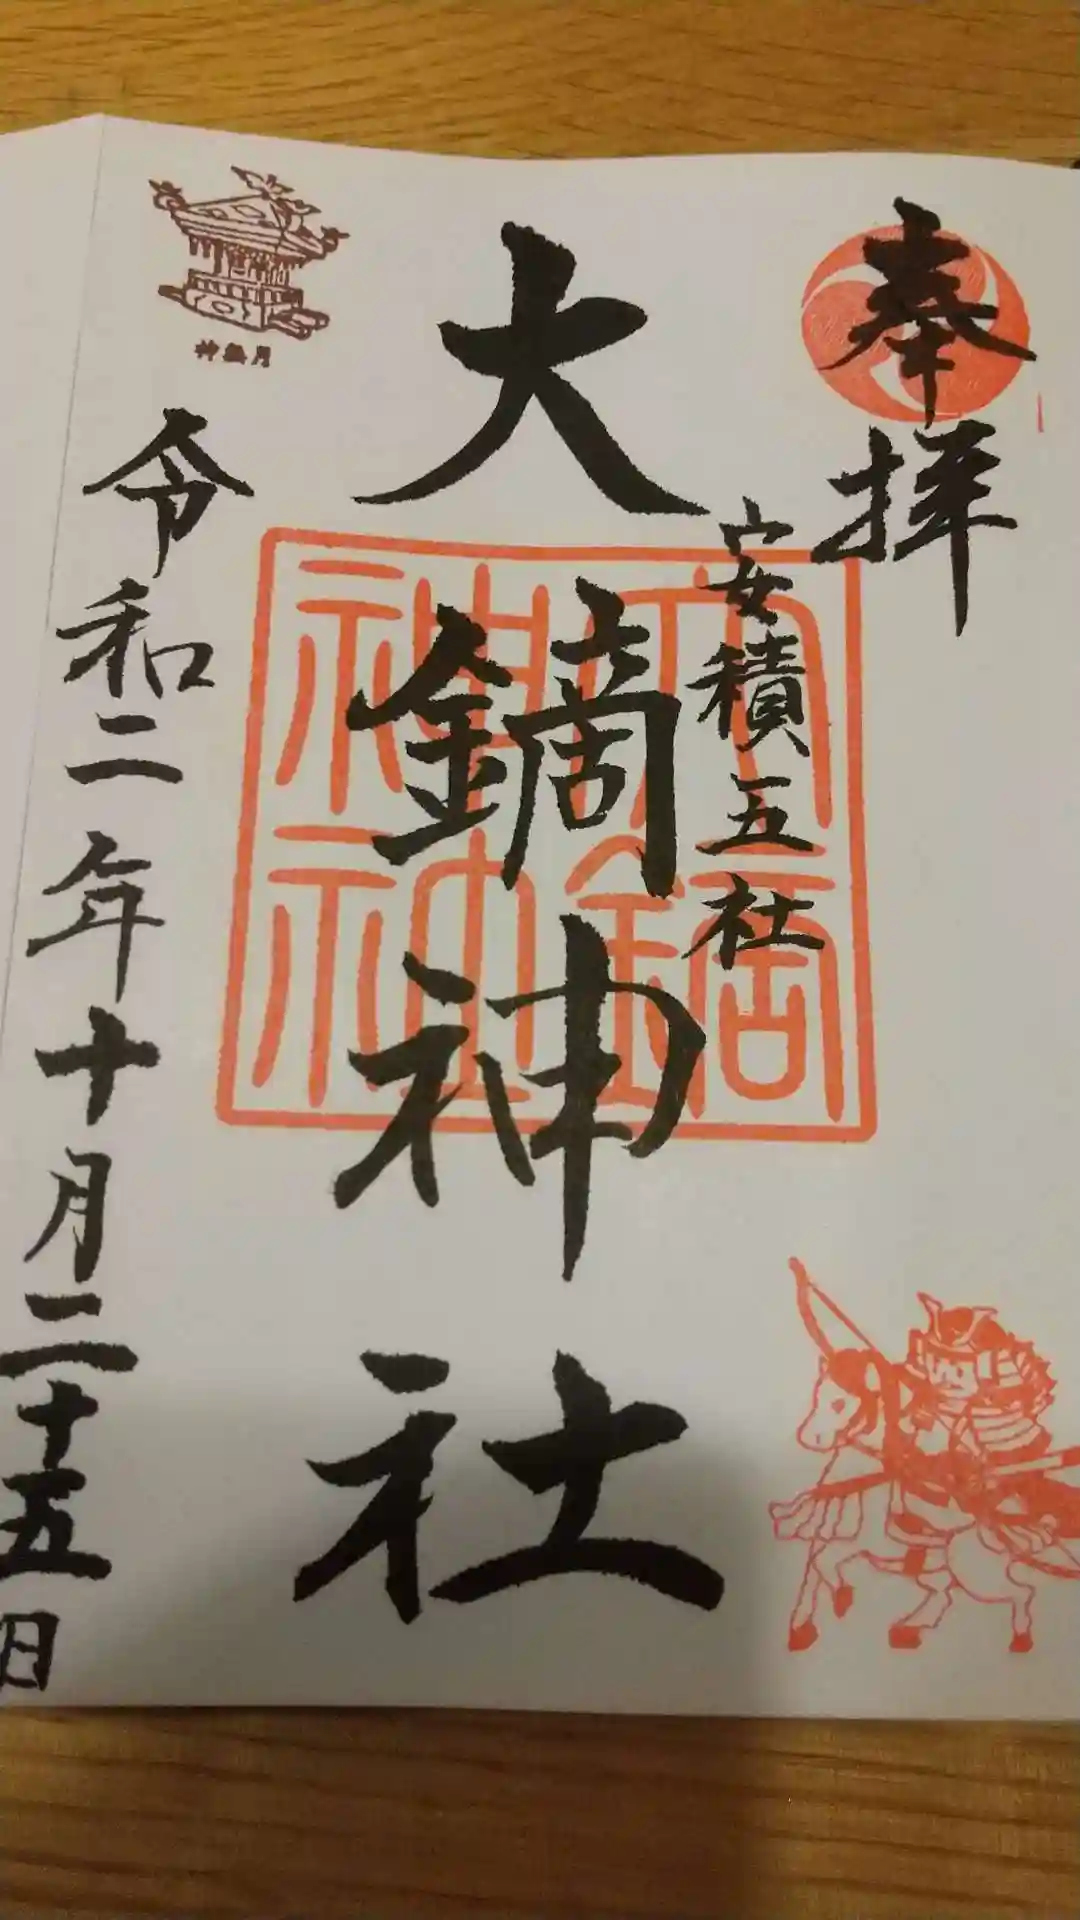 奉拝
安積五社
大鏑神社
大鏑神社
神無月
令和二年十月二十五日